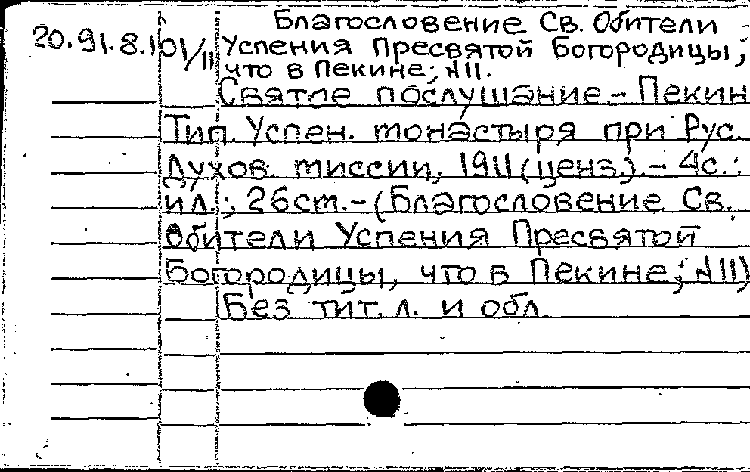 Благословение Св. Обители
20.91.8.1 01/11 Успения Пресвятой Богородицы,
что в Пекине; №11.
Святое послушание. - Пекин
Тип. Успен. монастыря при Рус.
Духов. миссии, 1911 (ценз.). - 4с.:
ил.; 26 см. - (Благословение Св.
Обители Успения Пресвятой
Богородицы, что в Пекине; №11)
Без тит. л. и обл.